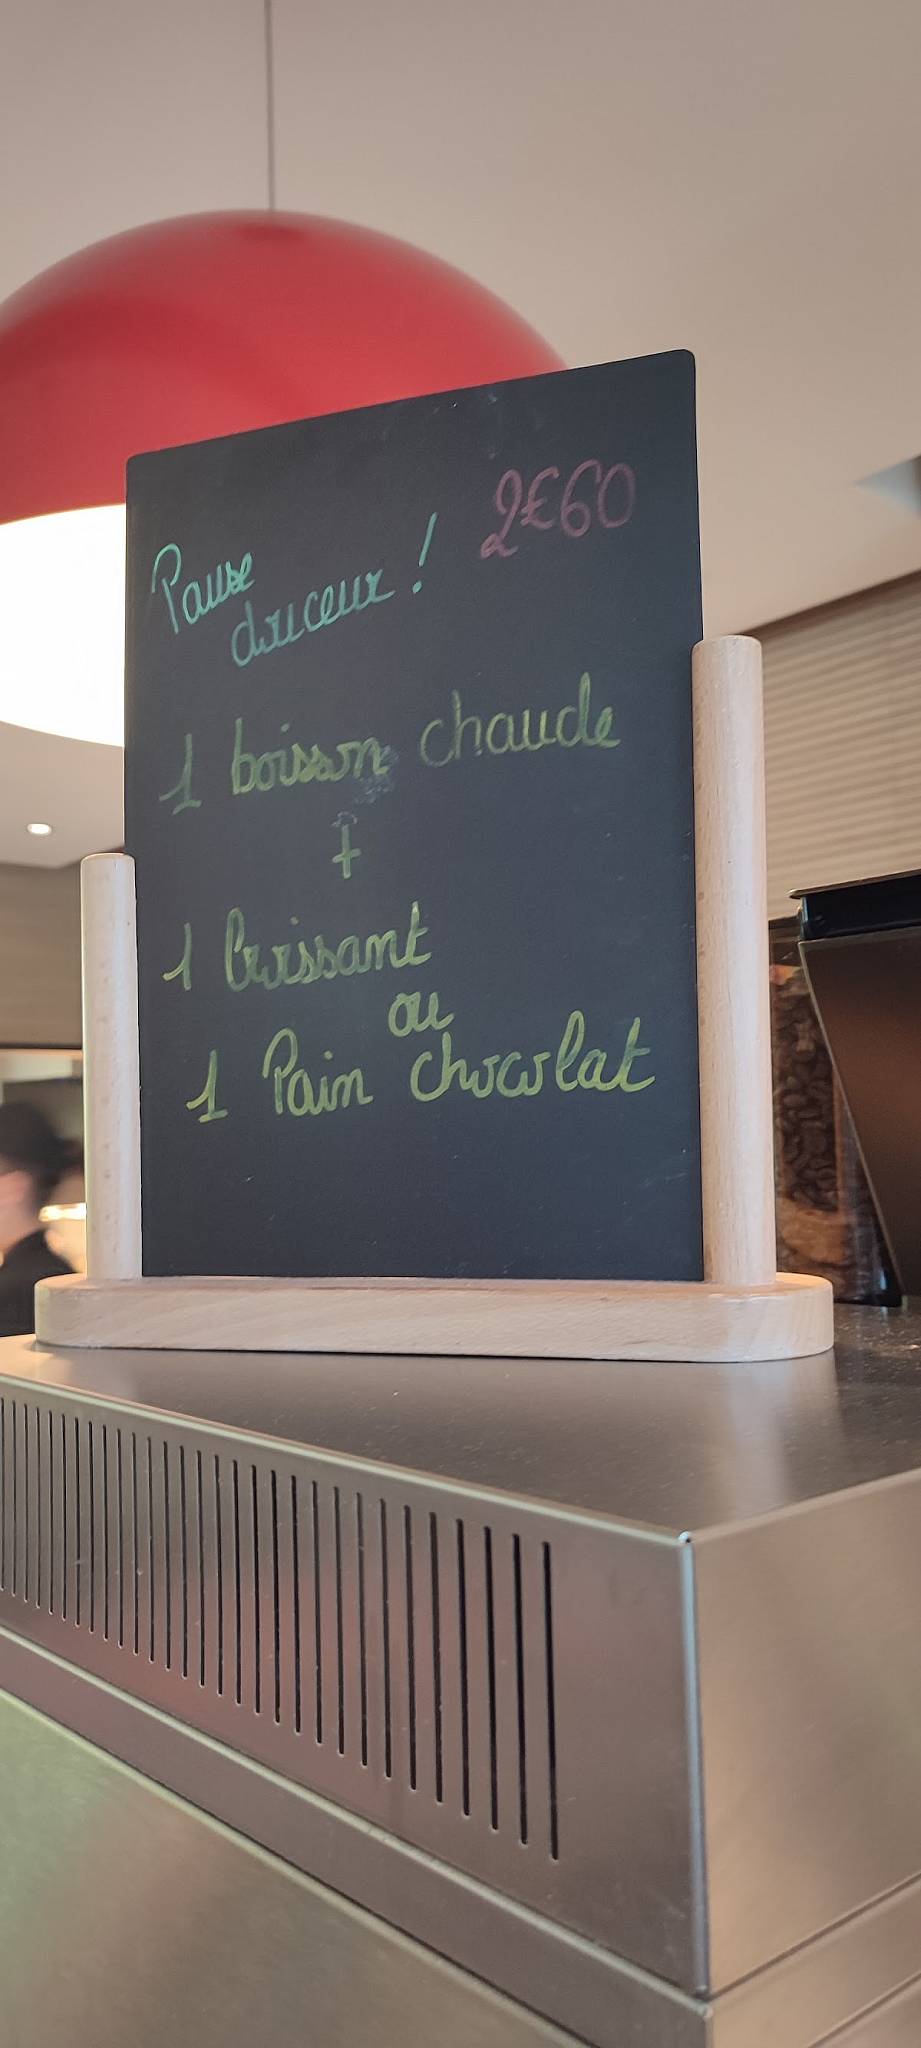 2€60
Pause
douceur !
1 boisson chaude
+
1 Croissant
ou
1 Pain chocolat